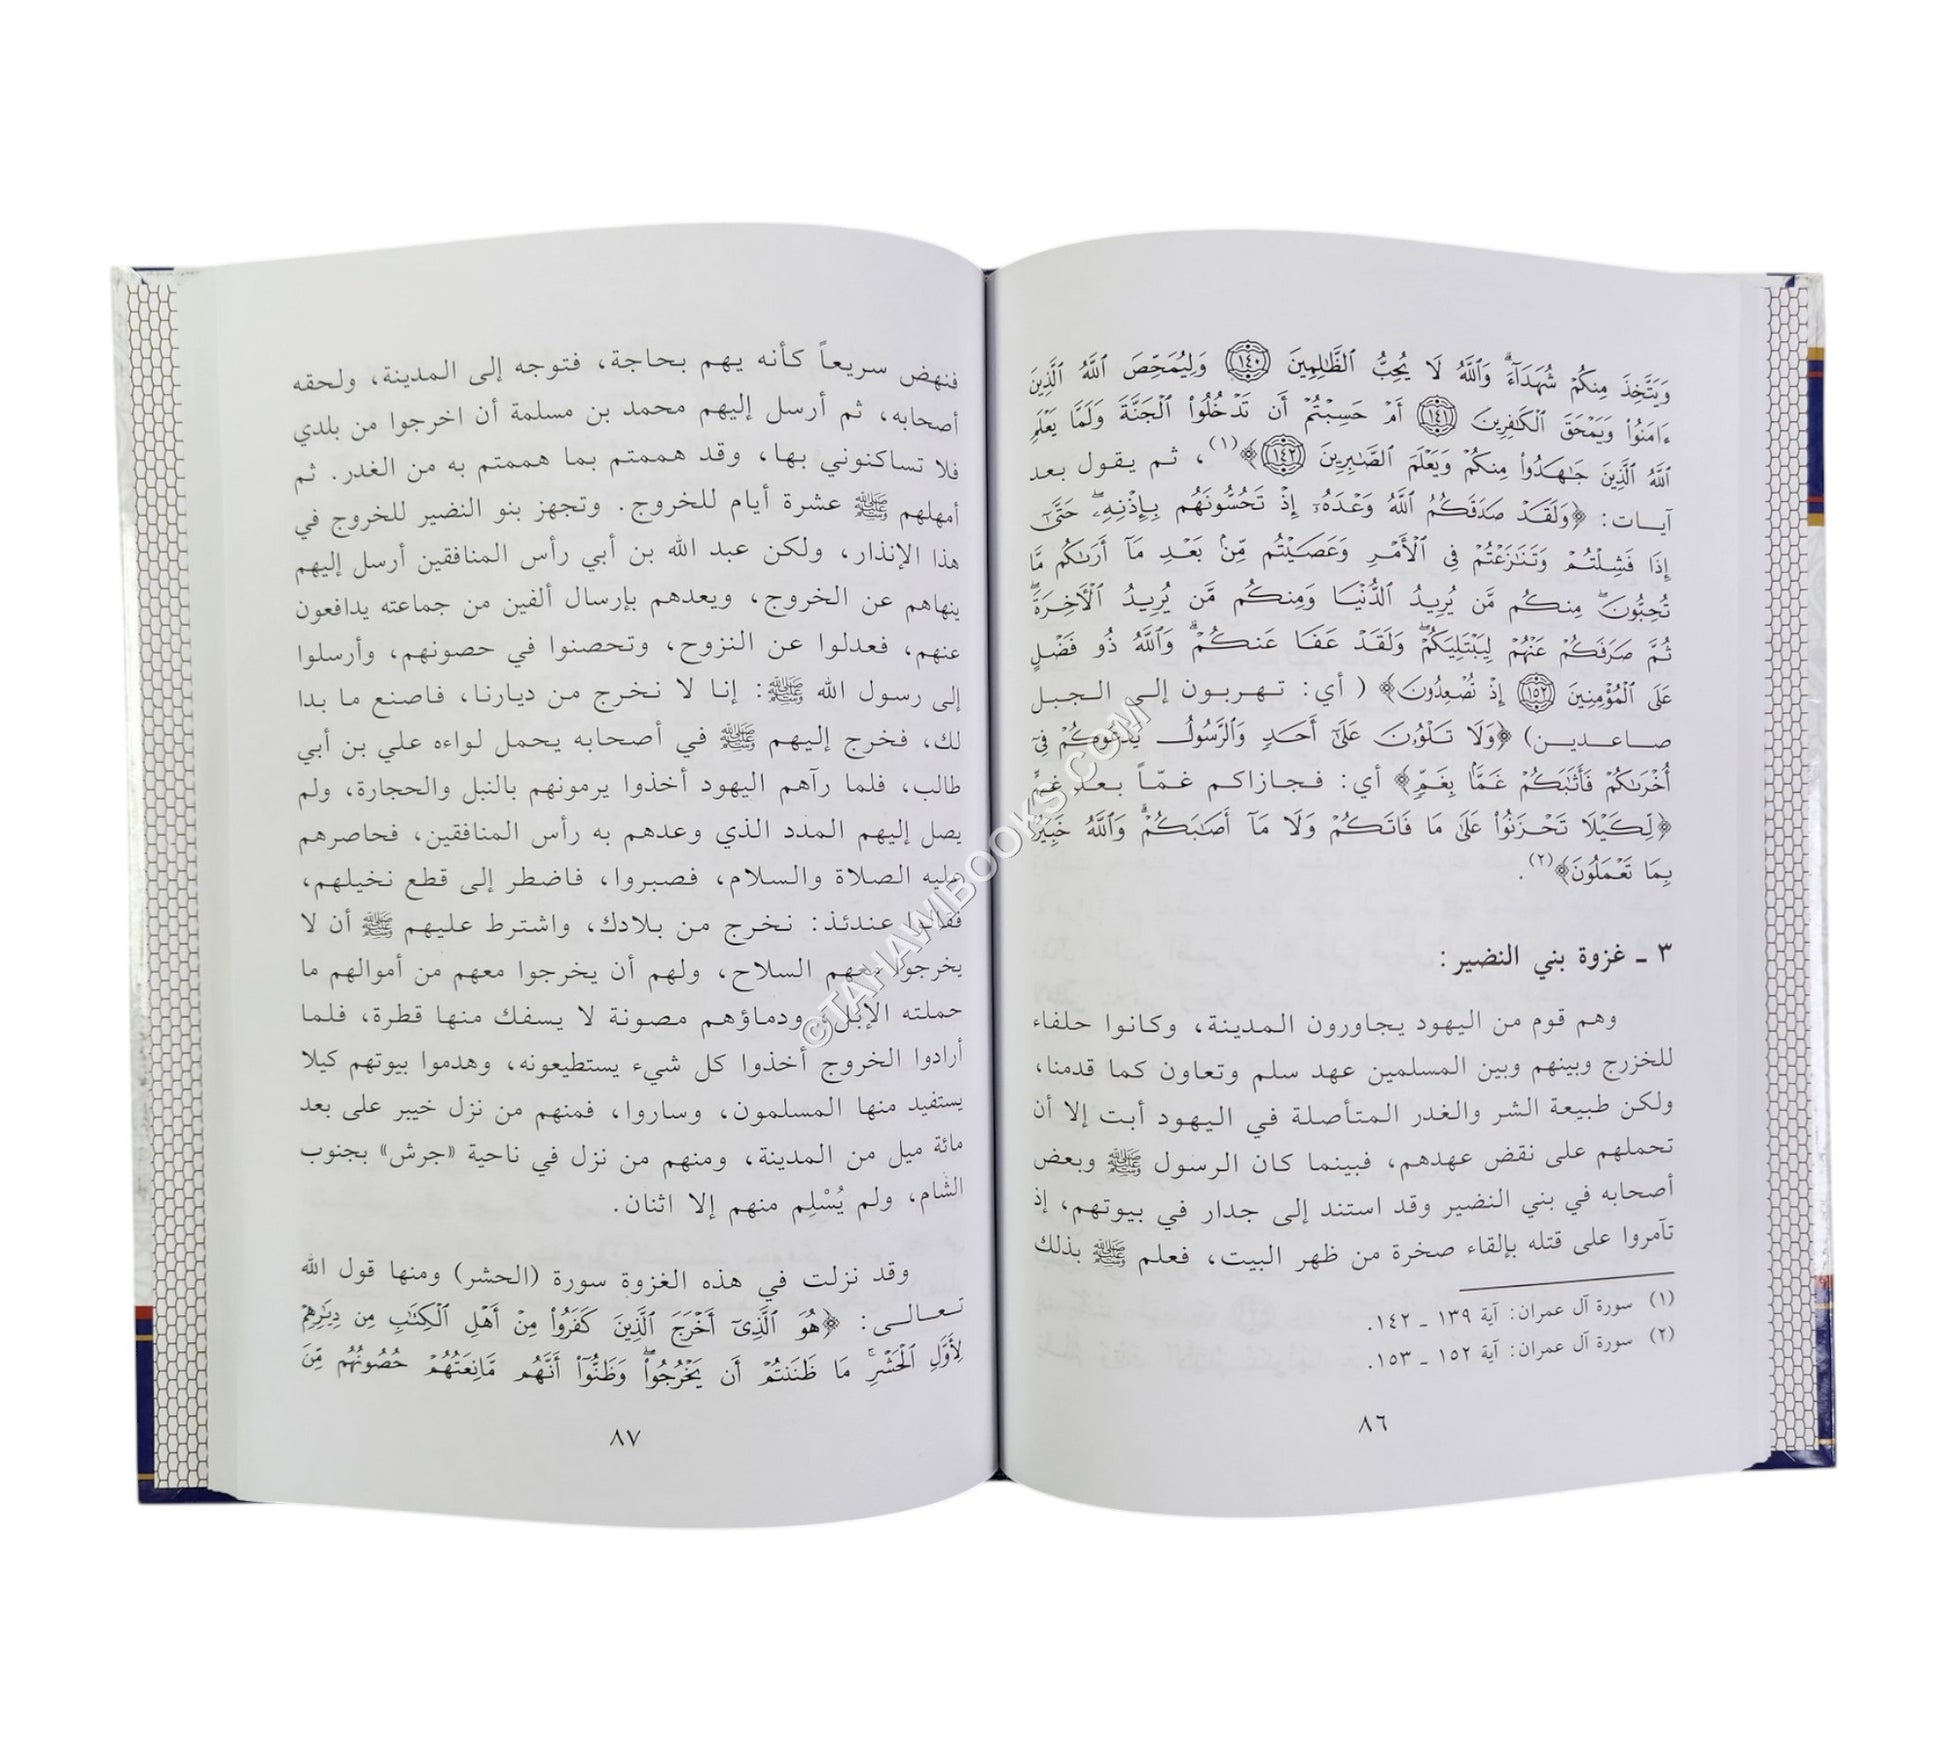 وَيَتَّخِذَ مِنكُمْ شُهَدَآءَ ۗ وَٱللَّهُ لَا يُحِبُّ ٱلظَّٰلِمِينَ ﴿١٤٠﴾ وَلِيُمَحِّصَ ٱللَّهُ ٱلَّذِينَ
ءَامَنُوا۟ وَيَمْحَقَ ٱلْكَٰفِرِينَ ﴿١٤١﴾ أَمْ حَسِبْتُمْ أَن تَدْخُلُوا۟ ٱلْجَنَّةَ وَلَمَّا يَعْلَمِ
ٱللَّهُ ٱلَّذِينَ جَٰهَدُوا۟ مِنكُمْ وَيَعْلَمَ ٱلصَّٰبِرِينَ ﴿١٤٢﴾﴾(١)، ثم يقول بعد
آيات: ﴿وَلَقَدْ صَدَقَكُمُ ٱللَّهُ وَعْدَهُۥٓ إِذْ تَحُسُّونَهُم بِإِذْنِهِۦ ۖ حَتَّىٰٓ
إِذَا فَشِلْتُمْ وَتَنَٰزَعْتُمْ فِى ٱلْأَمْرِ وَعَصَيْتُم مِّنۢ بَعْدِ مَآ أَرَىٰكُم مَّا
تُحِبُّونَ ۚ مِنكُم مَّن يُرِيدُ ٱلدُّنْيَا وَمِنكُم مَّن يُرِيدُ ٱلْأَخِرَةَ ۚ
ثُمَّ صَرَفَكُمْ عَنْهُمْ لِيَبْتَلِيَكُمْ ۖ وَلَقَدْ عَفَا عَنكُمْ ۗ وَٱللَّهُ ذُو فَضْلٍ
عَلَى ٱلْمُؤْمِنِينَ ﴿١٥٢﴾ إِذْ تُصْعِدُونَ﴾ (أي: تهربون إلى الجبل
صاعدين) ﴿وَلَا تَلْوُۥنَ عَلَىٰٓ أَحَدٍ وَٱلرَّسُولُ يَدْعُوكُمْ فِىٓ
أُخْرَىٰكُمْ فَأَثَٰبَكُمْ غَمًّۢا بِغَمٍّ﴾ أي: فجازاكم غمّاً بعد غمٍّ
﴿لِّكَيْلَا تَحْزَنُوا۟ عَلَىٰ مَا فَاتَكُمْ وَلَا مَآ أَصَٰبَكُمْ ۗ وَٱللَّهُ خَبِيرٌۢ
بِمَا تَعْمَلُونَ﴾(٢).
٣ ـ غزوة بني النضير:
وهم قوم من اليهود يجاورون المدينة، وكانوا حلفاء
للخزرج وبينهم وبين المسلمين عهد سلم وتعاون كما قدمنا،
ولكن طبيعة الشر والغدر المتأصلة في اليهود أبت إلا أن
تحملهم على نقض عهدهم، فبينما كان الرسول ﷺ وبعض
أصحابه في بني النضير وقد استند إلى جدار في بيوتهم، إذ
تآمروا على قتله بإلقاء صخرة من ظهر البيت، فعلم ﷺ بذلك
(١) سورة آل عمران: آية ١٣٩ ـ ١٤٢.
(٢) سورة آل عمران: آية ١٥٢ ـ ١٥٣.
٨٦
فنهض سريعاً كأنه يهم بحاجة، فتوجه إلى المدينة، ولحقه
أصحابه، ثم أرسل إليهم محمد بن مسلمة أن اخرجوا من بلدي
فلا تساكنوني بها، وقد هممتم بما هممتم به من الغدر. ثم
أمهلهم ﷺ عشرة أيام للخروج. وتجهز بنو النضير للخروج في
هذا الإنذار، ولكن عبد الله بن أبي رأس المنافقين أرسل إليهم
ينهاهم عن الخروج، ويعدهم بإرسال ألفين من جماعته يدافعون
عنهم، فعدلوا عن النزوح، وتحصنوا في حصونهم، وأرسلوا
إلى رسول الله ﷺ: إنا لا نخرج من ديارنا، فاصنع ما بدا
لك، فخرج إليهم ﷺ في أصحابه يحمل لواءه علي بن أبي
طالب، فلما رآهم اليهود أخذوا يرمونهم بالنبل والحجارة، ولم
يصل إليهم المدد الذي وعدهم به رأس المنافقين، فحاصرهم
عليه الصلاة والسلام، فصبروا، فاضطر إلى قطع نخيلهم،
فقالوا عندئذ: نخرج من بلادك، واشترط عليهم ﷺ أن لا
يخرجوا معهم السلاح، ولهم أن يخرجوا معهم من أموالهم ما
حملته الإبل، ودماؤهم مصونة لا يسفك منها قطرة، فلما
أرادوا الخروج أخذوا كل شيء يستطيعونه، وهدموا بيوتهم كيلا
يستفيد منها المسلمون، وساروا، فمنهم من نزل خيبر على بعد
مائة ميل من المدينة، ومنهم من نزل في ناحية «جرش» بجنوب
الشام، ولم يُسْلِم منهم إلا اثنان.
وقد نزلت في هذه الغزوة سورة (الحشر) ومنها قول الله
تعالى: ﴿هُوَ ٱلَّذِىٓ أَخْرَجَ ٱلَّذِينَ كَفَرُوا۟ مِنْ أَهْلِ ٱلْكِتَٰبِ مِن دِيَٰرِهِمْ
لِأَوَّلِ ٱلْحَشْرِ ۚ مَا ظَنَنتُمْ أَن يَخْرُجُوا۟ ۖ وَظَنُّوٓا۟ أَنَّهُم مَّانِعَتُهُمْ حُصُونُهُم مِّنَ
٨٧
©TAHAWIBOOKS.COM